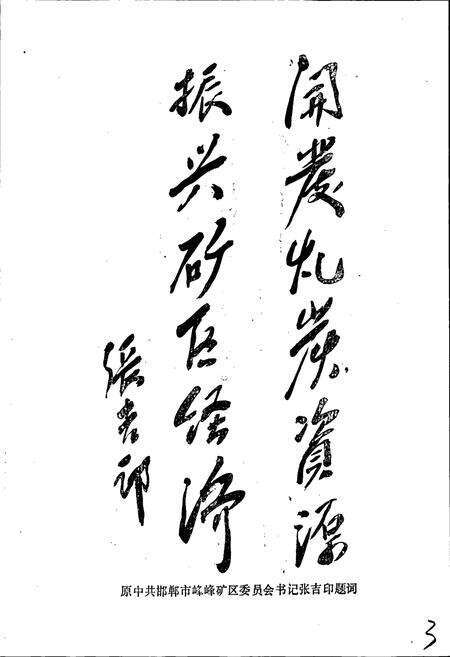 開發煤炭資源
振兴矿区经济
張吉印
原中共邯郸市峰峰矿区委员会书记张吉印题词
3